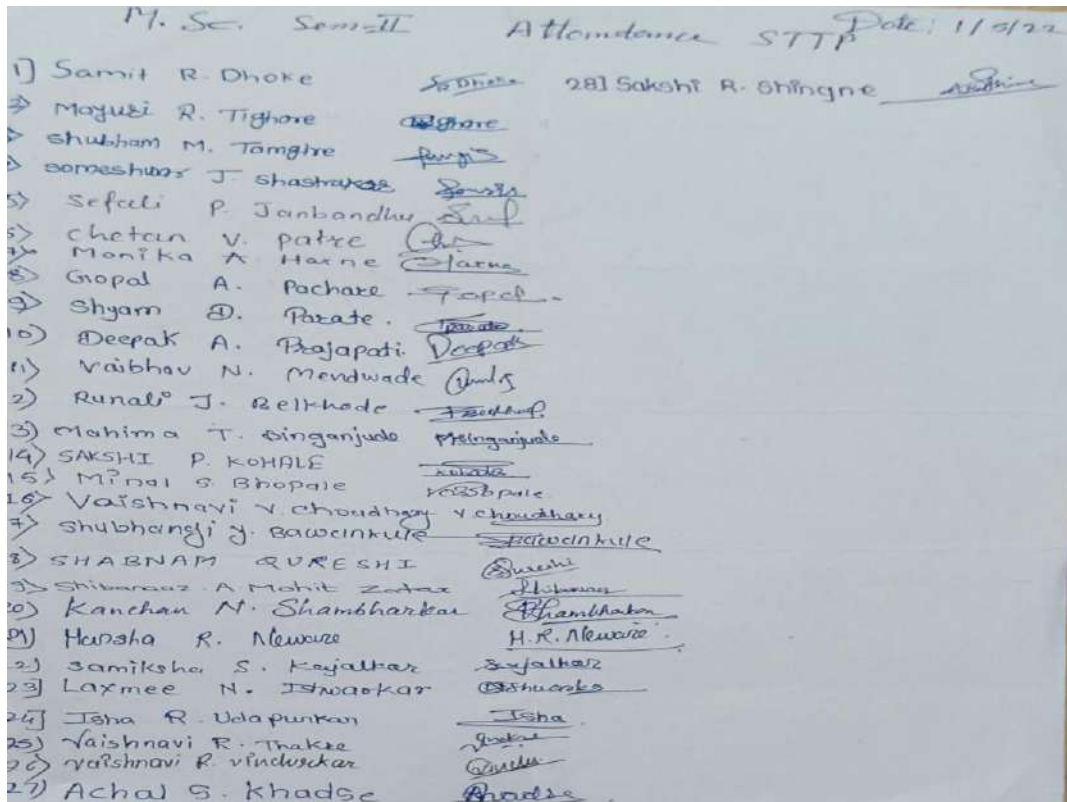 M. Sc. Sem-II Attendance STTP Date: 1/5/22
1] Samit R. Dhoke SDhoke 28] Sakshi R. Shingne
Mayuri R. Tighare Tighare
Shubham M. Tamgire
Someshwar J. Shastrakar
5) Sefali P. Janbandhu
Chetan V. Patre
7) Monika A Harne Harne
8) Gopal A. Pachare Gopal
9) Shyam D. Parate. Parate
10) Deepak A. Prajapati. Deepak
11) Vaibhav N. Mendwade
2) Runali J. Belkhode
3) Mahima T. Singanjude MSinganjude
14) SAKSHI P. KOHALE Kohale
15) Minal S. Bhopale Bhopale
16) Vaishnavi V. Choudhary V. Choudhary
7) Shubhangi Y. Bawankule Bawankule
8) SHABNAM QURESHI Qureshi
9) A Mohit
20) Kanchan N. Shambharkar Shambharkar
21) Harsha R. Neware H. R. Neware
2) Samiksha S. Kajalkar Sujalkar
23] Laxmee N. Ishwarkar
24] Isha R. Udapurkar Isha
25) Vaishnavi R. Thakre
26) Vaishnavi R. Vindurkar
27) Achal S. Khadse Khadse